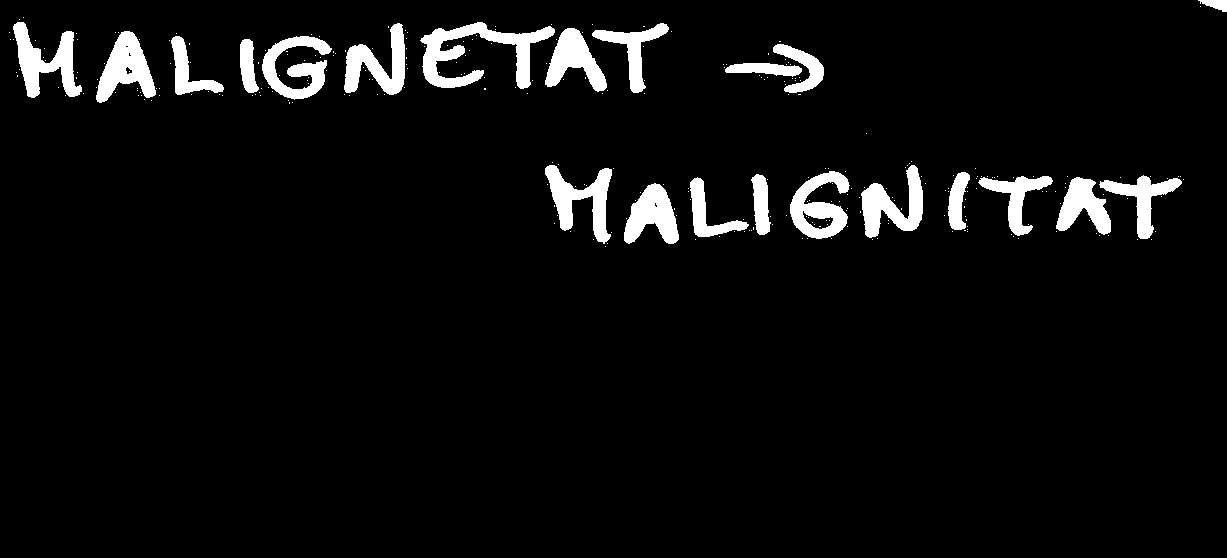 MALIGNETAT →
MALIGNITAT